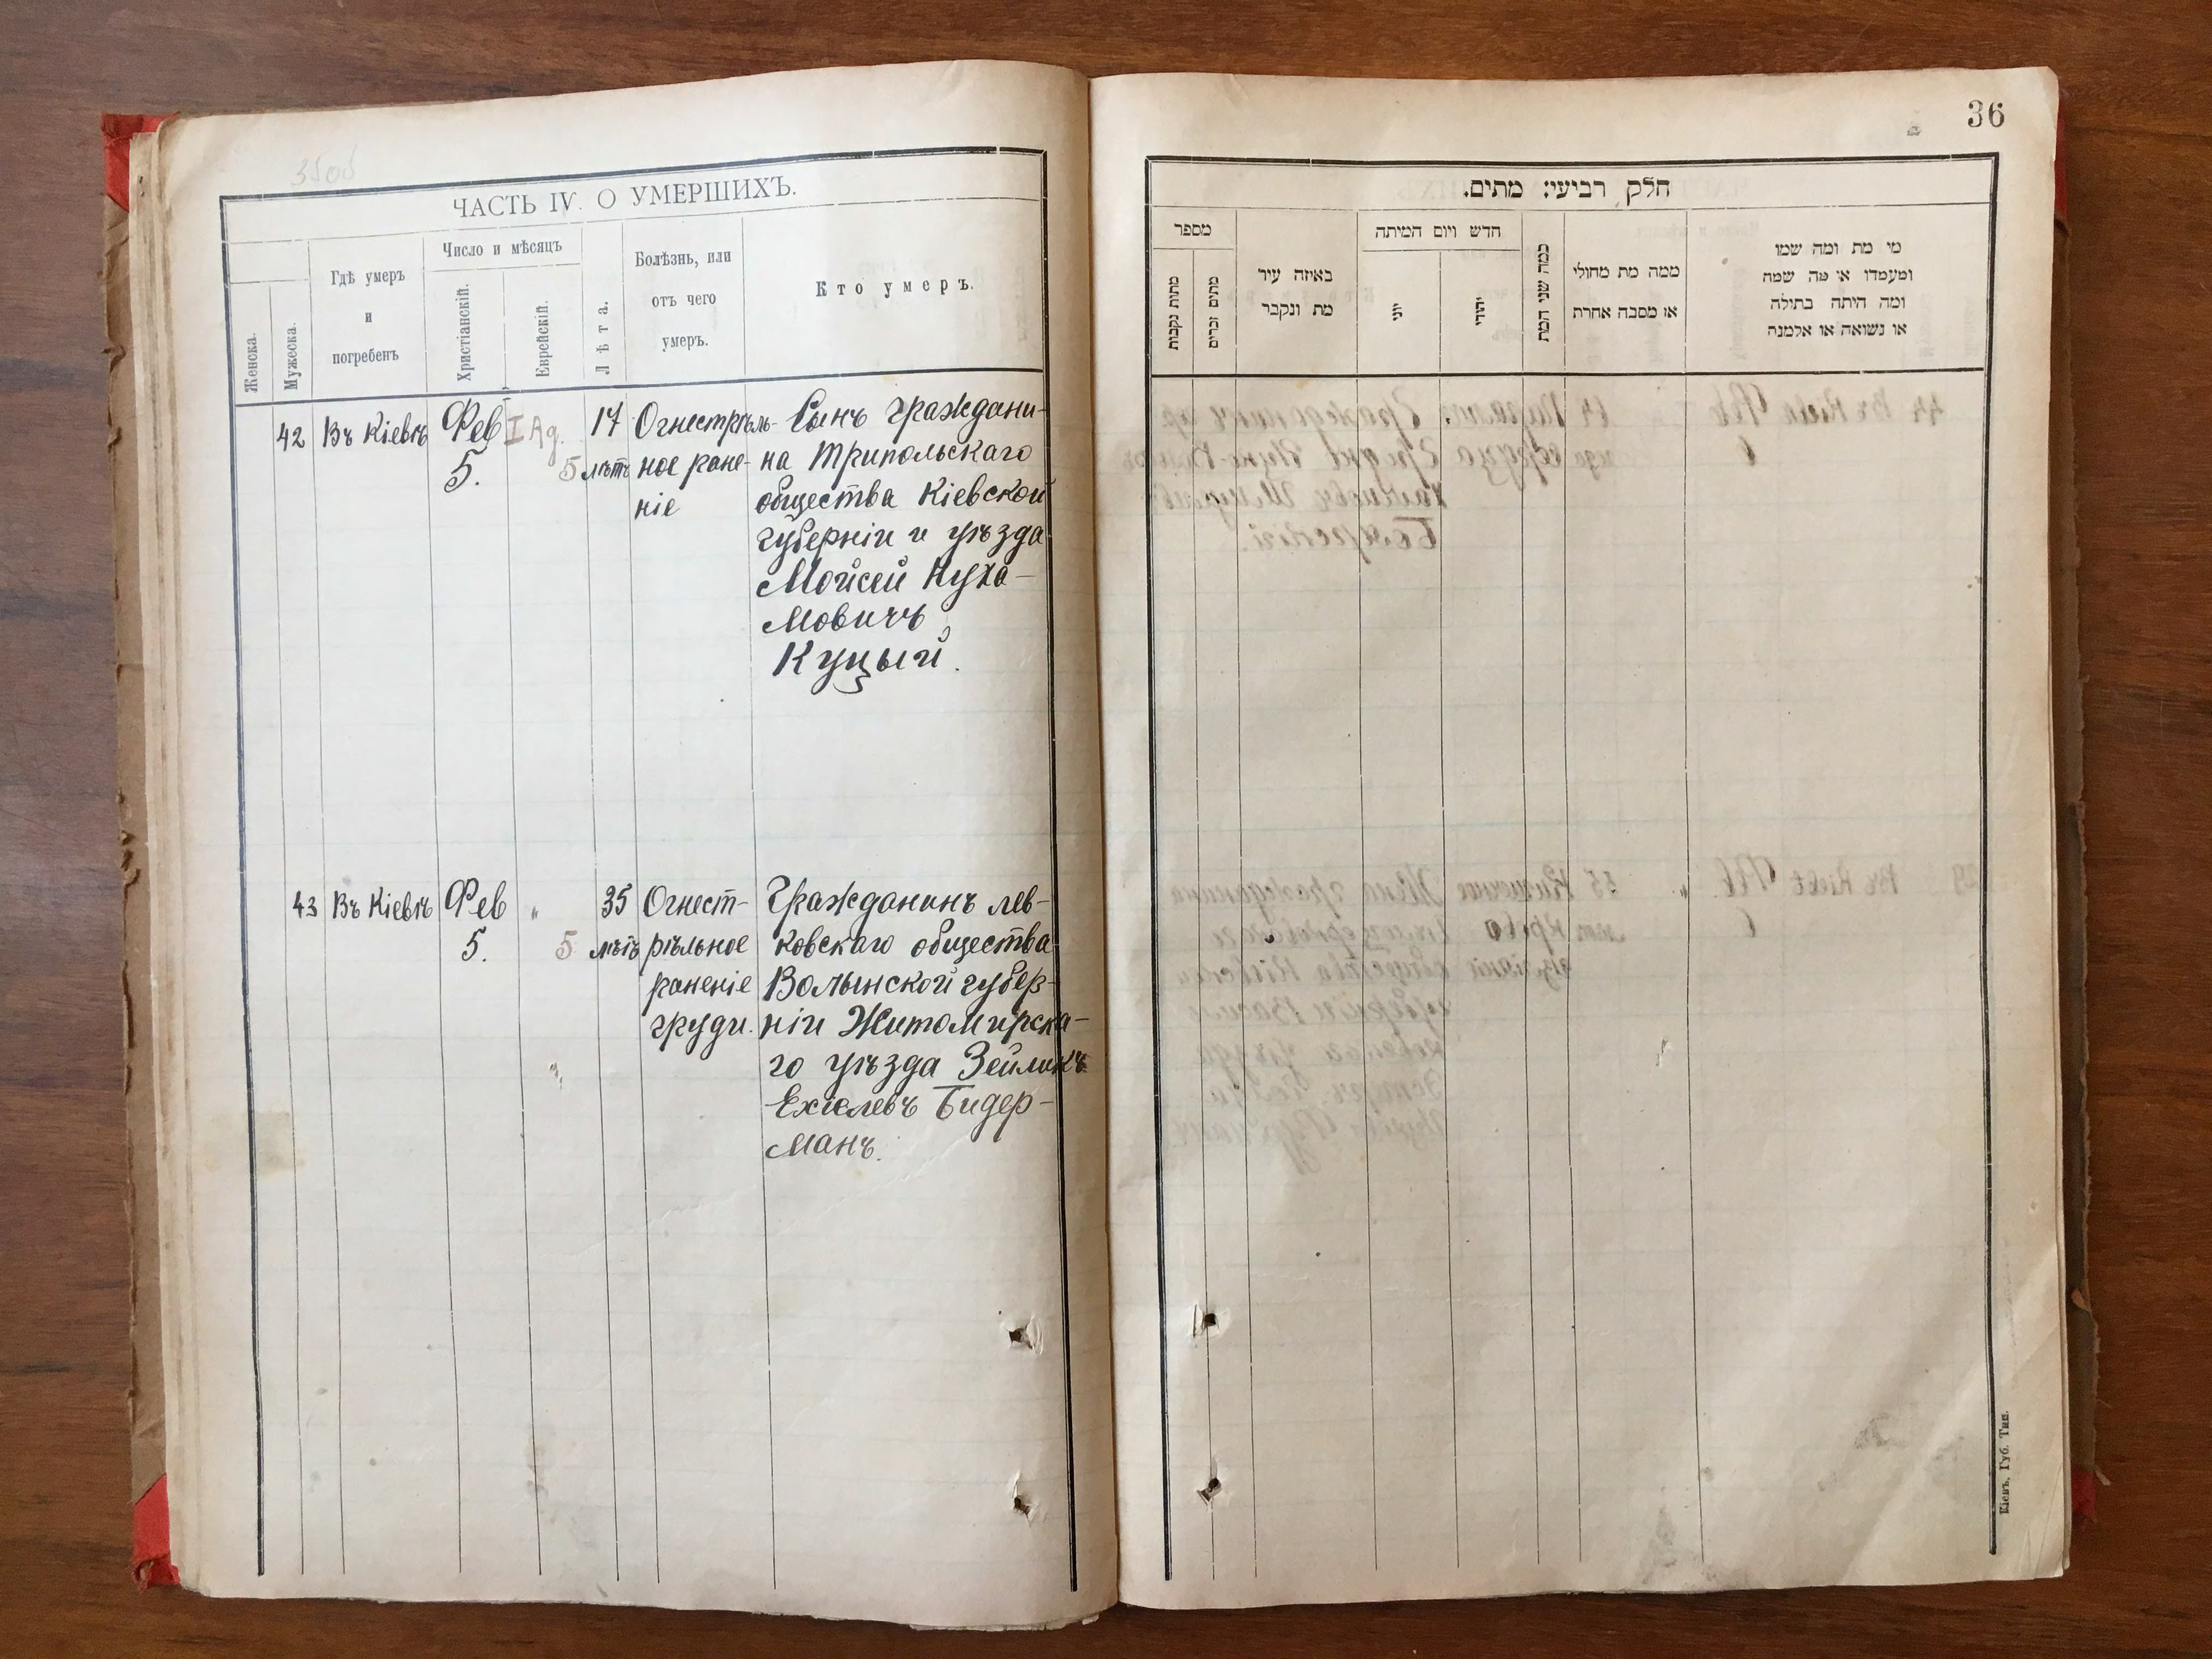 35об
ЧАСТЬ IV. О УМЕРШИХЪ.
Женска.
Мужеска.
Гдѣ умеръ
и
погребенъ
Число и мѣсяцъ
Христіанскій.
Еврейскій.
Лѣта.
Болѣзнь, или
отъ чего
умеръ.
Кто умеръ.
42
Въ Кіевѣ
Фев
5.
I Ад.
5
17
лѣтъ
Огнестрѣль-
ное ране-
ніе
Сынъ граждани-
на Трипольскаго
общества Кіевской
губерніи и уѣзда
Мойсей Нуха-
мовичъ
Куцый.
43
Въ Кіевѣ
Фев
5.
"
5
35
лѣтъ
Огнест-
рѣльное
раненіе
груди.
Гражданинъ лев-
ковскаго общества
Волынской губер-
ніи Житомирска-
го уѣзда Зейликъ
Ехіелевъ Бидер-
манъ.
36
חלק רביעי: מתים.
מספר
מתות נקבות
מתים זכרים
באיזה עיר
מת ונקבר
חדש ויום המיתה
יוני
יהודי
כמה שני המת
ממה מת מחולי
או מסבה אחרת
מי מת ומה שמו
ומעמדו או מה שמה
ומה היתה בתילה
או נשואה או אלמנה
Кіевъ, Губ. Тип.